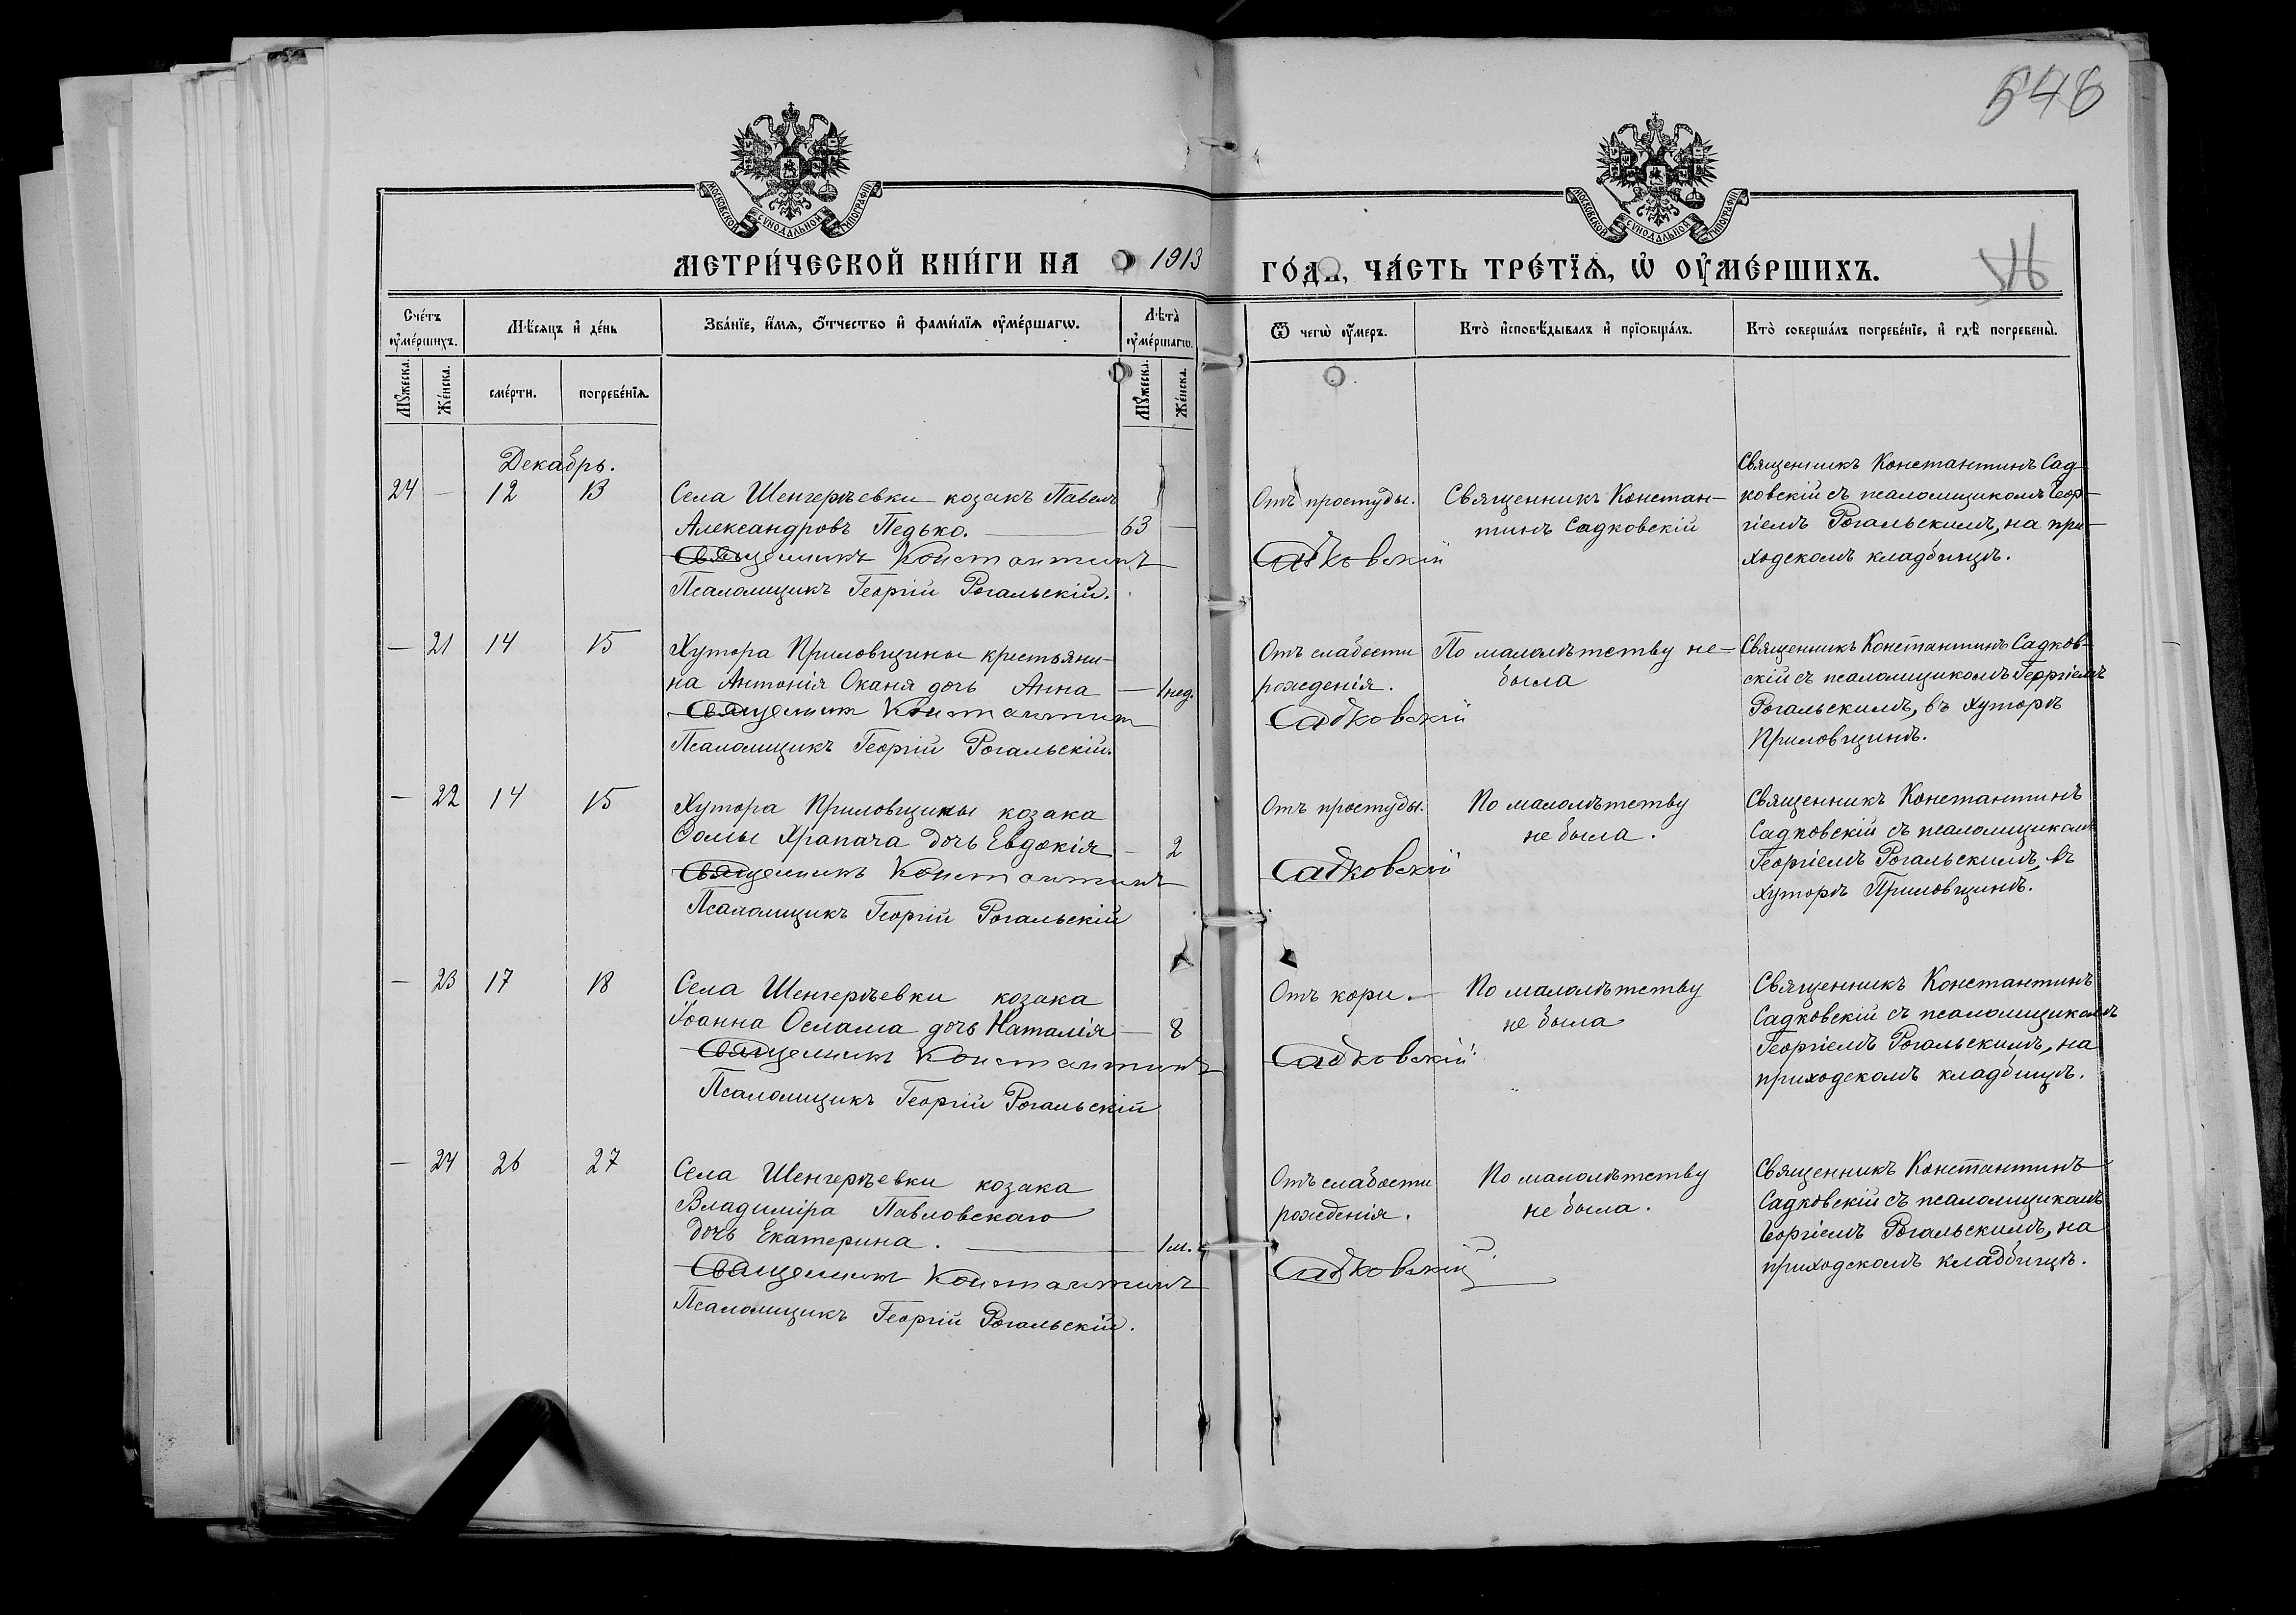 546
МОСКОВСКОЙ СУНОДАЛЬНОЙ ТИПОГРАФІИ
МОСКОВСКОЙ СУНОДАЛЬНОЙ ТИПОГРАФІИ
МЕТРИ́ЧЕСКОЙ КНИ́ГИ НА 1913 ГО́ДЪ, ЧА́СТЬ ТРЕ́ТЇѦ, Ѡ҆ ОУ҆МЕ́РШИХЪ.
546
Сче́тъ оу҆ме́ршихъ.
Мѣ́сѧцъ и҆ де́нь
Зва́нїе, и҆́мѧ, ѻ҆́тчество и҆ фами́лїѧ оу҆ме́ршагѡ.
Лѣ̀та оу҆ме́ршагѡ.
Ѿ чегѡ̀ оу҆́меръ.
Кто̀ и҆сповѣ́дывалъ и҆ прїѡбща́лъ.
Кто̀ соверша́лъ погребе́нїе, и҆ гдѣ̀ погребены̀.
Мꙋ́жеска.
Же́нска.
сме́рти.
погребе́нїѧ.
Мꙋ́жеска.
Же́нска.
Декабрь.
24 — 12 13
Села Шенгерѣевки козакъ Павелъ
Александровъ Педько. — 63 —
Священникъ Константинъ
Псаломщикъ Георгій Рогальскій.
Отъ простуды.
Садковскій
Священникъ Констан-
тинъ Садковскій
Священникъ Константинъ Сад-
ковскій съ псаломщикомъ Геор-
гіемъ Рогальскимъ, на при-
ходскомъ кладбищѣ.
— 21 14 15
Хутора Приловщины крестьяни-
на Антонія Оканя дочь Анна — 1 нед.
Священникъ Константинъ
Псаломщикъ Георгій Рогальскій.
Отъ слабости
рожденія.
Садковскій
По малолѣтству не-
была
Священникъ Константинъ Садков-
скій съ псаломщикомъ Георгіемъ
Рогальскимъ, въ хуторѣ
Приловщинѣ.
— 22 14 15
Хутора Приловщины козака
Ѳомы Храпача дочь Евдокія — 2
Священникъ Константинъ
Псаломщикъ Георгій Рогальскій
Отъ простуды.
Садковскій
По малолѣтству
не была.
Священникъ Константинъ
Садковскій съ псаломщикомъ
Георгіемъ Рогальскимъ, въ
хуторѣ Приловщинѣ.
— 23 17 18
Села Шенгерѣевки козака
Іоанна Ослама дочь Наталія — 8
Священникъ Константинъ
Псаломщикъ Георгій Рогальскій
Отъ кори. —
Садковскій
По малолѣтству
не была
Священникъ Константинъ
Садковскій съ псаломщикомъ
Георгіемъ Рогальскимъ, на
приходскомъ кладбищѣ.
— 24 26 27
Села Шенгерѣевки козака
Владиміра Павловскаго
дочь Екатерина. — 1 м.
Священникъ Константинъ
Псаломщикъ Георгій Рогальскій.
Отъ слабости
рожденія.
Садковскій
По малолѣтству
не была.
Священникъ Константинъ
Садковскій съ псаломщикомъ
Георгіемъ Рогальскимъ, на
приходскомъ кладбищѣ.